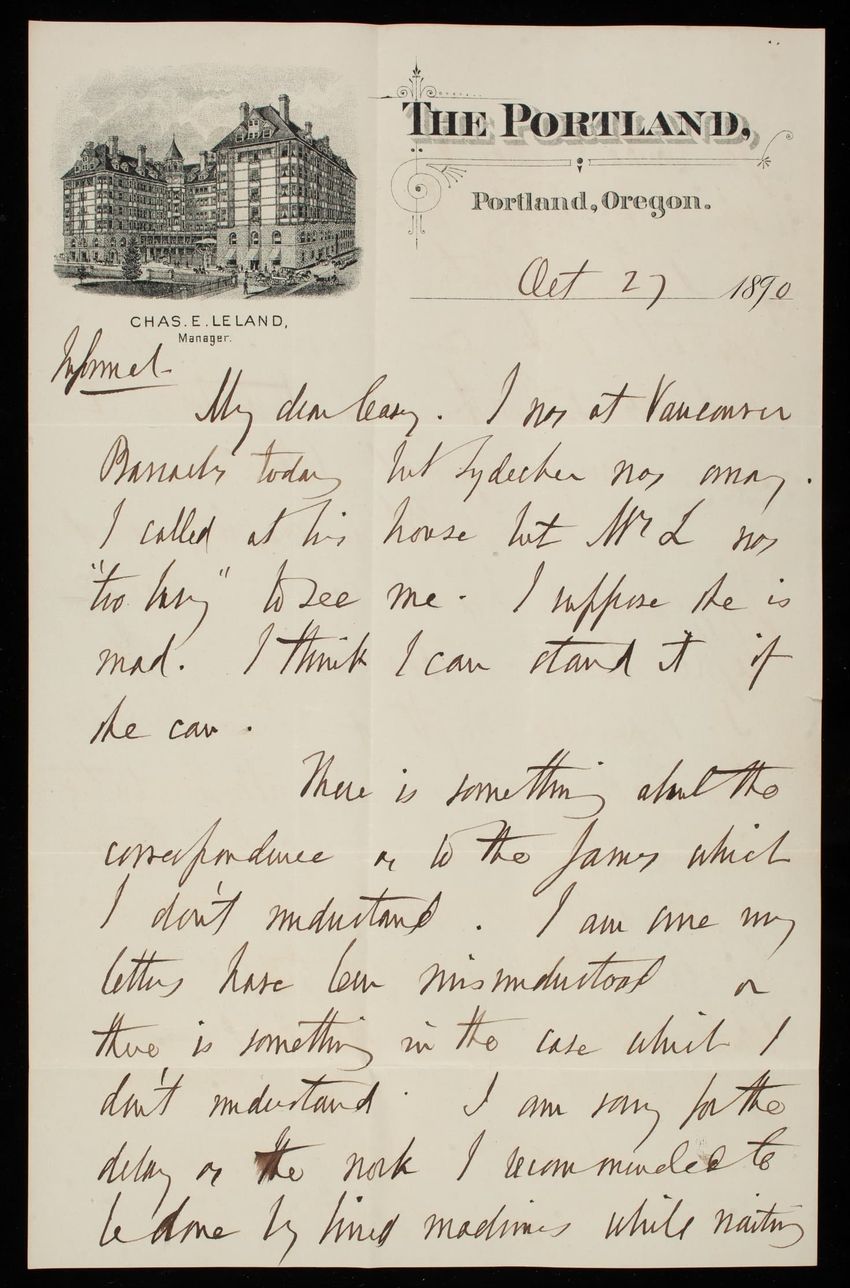 THE PORTLAND,
Portland, Oregon.
Oct 27 1890
CHAS. E. LELAND,
Manager.
Informal
My dear Casey. I was at Vancouver
Barracks today but Lydecker was away.
I called at his house but Mrs L was
"too busy" to see me. I suppose she is
mad. I think I can stand it if
she can.
There is something about the
correspondence as to the James which
I don't understand. I am sure my
letters have been misunderstood or
there is something in the case which I
don't understand. I am sorry for the
delay as the work I recommended to
be done by hired machines while waiting